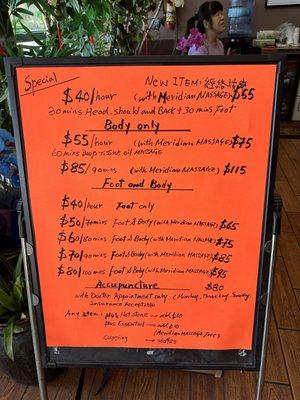 Special
NEW ITEM:
$40/hour (with Meridian MASSAGE) $65
30 mins Head, should and back + 30 mins Foot
Body only
$55/hour (with Meridian MASSAGE) $75
60 mins oil MASSAGE
$85/90mins (with Meridian MASSAGE) $115
Foot and Body
$40/hour Foot only
$50/70mins Foot & Body (with Meridian MASSAGE) $65
$60/80mins Foot & Body (with Meridian MASSAGE) $75
$70/90mins Foot & Body (with Meridian MASSAGE) $85
$80/100mins Foot & Body (with Meridian MASSAGE) $95
Accupuncture $80
with Doctor Appointment only (Monday, Thursday, Sunday)
Insurance Acceptable
Any item: plus Hot stone → add $10
plus Essential → add $10
(Meridian MASSAGE Free)
Cupping →